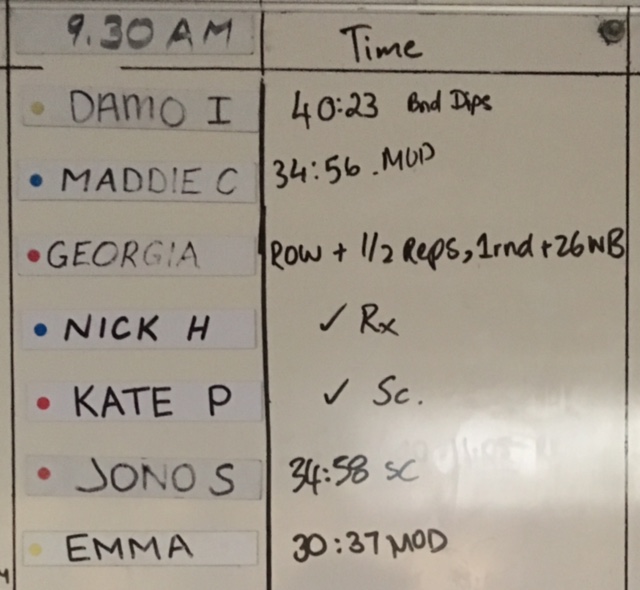 9.30 AM Time
DAMO I 40:23 Bnd Dips
MADDIE C 34:56 .MOD
GEORGIA Row + 1/2 Reps, 1rnd + 26 WB
NICK H ✓ Rx
KATE P ✓ Sc.
JONO S 34:58 SC
EMMA 30:37 MOD